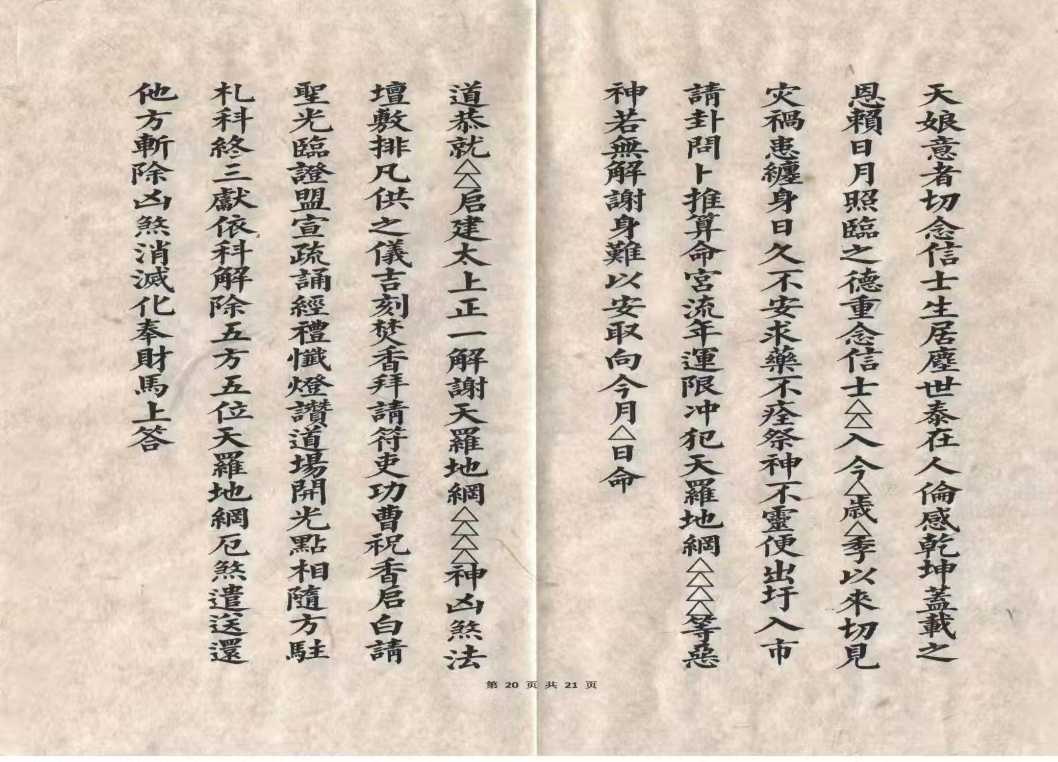 天娘意者切念信士生居塵世泰在人倫感乾坤蓋載之
恩賴日月照臨之德重念信士△△入今△歲△季以來切見
灾禍患纏身日久不安求藥不痊祭神不靈便出圩入市
請卦問卜推算命宮流年運限冲犯天羅地綱△△△△等惡
神若無解謝身難以安取向今月△日命
道恭就△△启建太上正一解謝天羅地綱△△△△神凶煞法
壇敷排凡供之儀吉刻焚香拜請符吏功曹祝香启白請
聖光臨證盟宣疏誦經禮懺燈讚道場開光點相隨方駐
札科終三獻依科解除五方五位天羅地綱厄煞遣送還
他方斬除凶煞消滅化奉財馬上答
第 20 页 共 21 页